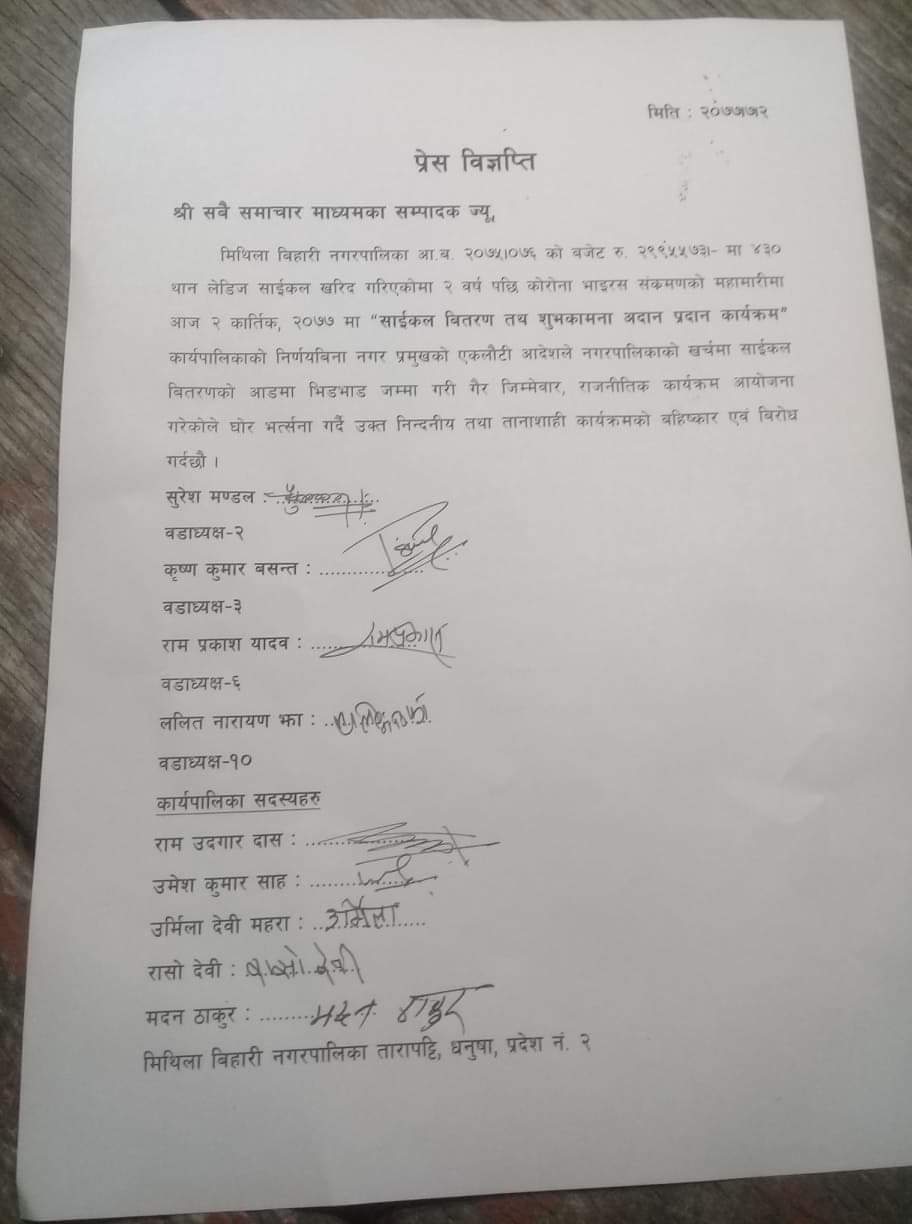 मिति : २०७७।७।२
प्रेस विज्ञप्ति
श्री सबै समाचार माध्यमका सम्पादक ज्यू,
मिथिला बिहारी नगरपालिका आ.ब. २०७५।०७६ को बजेट रु. २९९५५७३।- मा ४३०
थान लेडिज साईकल खरिद गरिएकोमा २ वर्ष पछि कोरोना भाइरस संकमणको महामारीमा
आज २ कार्तिक, २०७७ मा "साईकल बितरण तथ शुभकामना अदान प्रदान कार्यक्रम"
कार्यपालिकाको निर्णयबिना नगर प्रमुखको एकलौटी आदेशले नगरपालिकाको खर्चमा साईकल
बितरणको आडमा भिडभाड जम्मा गरी गैर जिम्मेवार, राजनीतिक कार्यक्रम आयोजना
गरेकोले घोर भर्त्सना गर्दै उक्त निन्दनीय तथा तानाशाही कार्यक्रमको बहिष्कार एवं बिरोध
गर्दछौ ।
सुरेश मण्डल :
वडाध्यक्ष-२
कृष्ण कुमार बसन्त : ...............
वडाध्यक्ष-३
राम प्रकाश यादव : ...... रामप्रकाश
वडाध्यक्ष-६
ललित नारायण झा : ..
वडाध्यक्ष-१०
कार्यपालिका सदस्यहरु
राम उदगार दास : ...............
उमेश कुमार साह : ...............
उर्मिला देवी महरा : ..उर्मिला.....
रासो देवी : रासो देवी
मदन ठाकुर : ........मदन ठाकुर
मिथिला बिहारी नगरपालिका तारापट्टि, धनुषा, प्रदेश नं. २